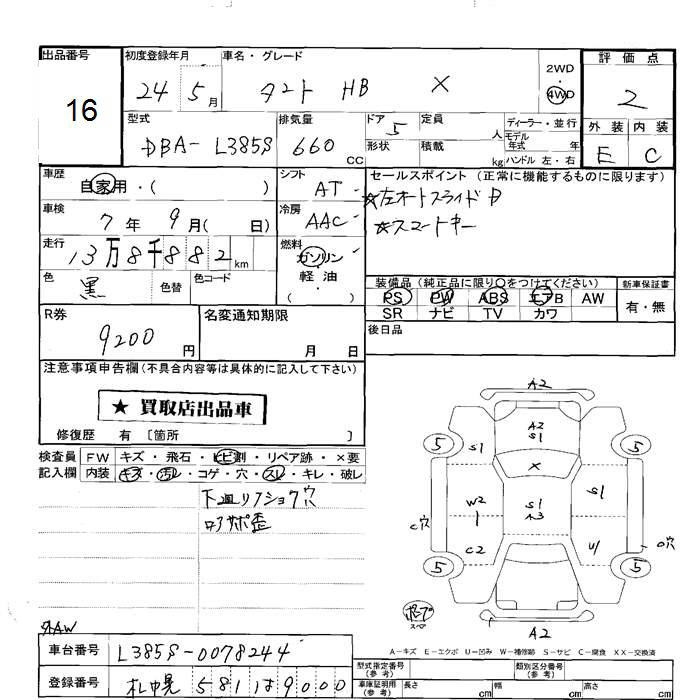 出品番号
16
初度登録年月
24 5月
車名・グレード
タント HB X
2WD
4WD
評価点
2
型式
DBA- L385S
排気量
660 CC
ドア 5
形状
定員 人
積載 kg
ディーラー・並行
モデル年式 年
ハンドル 左・右
外装 内装
E C
車歴
自家用・( )
シフト
AT
セールスポイント (正常に機能するものに限ります)
★左オートスライドD
★スマートキー
車検
7年 9月( 日)
冷房
AAC
走行
13万8千882km
燃料
ガソリン
軽油
( )
色
黒
色替
色コード
装備品(純正品に限り○をつけてください)
PS PW ABS エアB AW
SR ナビ TV カワ
新車保証書
有・無
R券
9200円
名変通知期限
月 日
後日品
注意事項申告欄(不具合内容等は具体的に記入して下さい)
★ 買取店出品車
修復歴 有 〔箇所 〕
検査員記入欄
FW キズ・飛石・ヒビ割・リペア跡・×要
内装 キズ・汚れ・コゲ・穴・スレ・キレ・破し
下廻リフショク穴
ロアサポ歪
A2
A2
S1
5
S1
5
X
W2
1
S1
A3
S1
C穴
C2
U1
C穴
5
5
スペア
A2
A－キズ E－エクボ U－凹み W－補修跡 S－サビ C－腐食 XX－交換済
車台番号
L385S-0078244
登録番号
札幌 581 は 9000
型式指定番号
(参考)
類別区分番号
(参考)
車庫証明用
(参考)
長さ cm
幅 cm
高さ cm